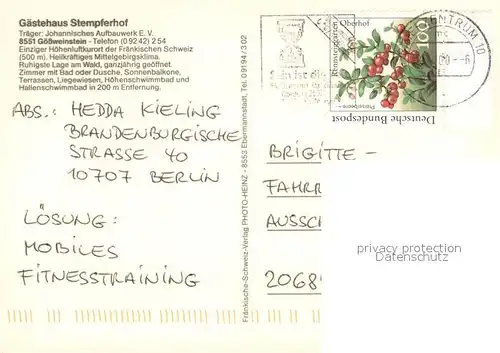 Gästehaus Stempferhof
Träger: Johannisches Aufbauwerk E. V.
8551 Gößweinstein - Telefon (0 92 42) 2 54
Einziger Höhenluftkurort der Fränkischen Schweiz
(500 m). Heilkräftiges Mittelgebirgsklima.
Ruhigste Lage am Wald, ganzjährig geöffnet.
Zimmer mit Bad oder Dusche, Sonnenbalkone,
Terrassen, Liegewiesen, Höhenschwimmbad und
Hallenschwimmbad in 200 m Entfernung.
ABS.: HEDDA KIELING
BRANDENBURGISCHE
STRASSE 40
10707 BERLIN
LÖSUNG:
MOBILES
FITNESSTRAINING
Fränkische-Schweiz-Verlag PHOTO-HEINZ - 8553 Ebermannstadt, Tel. 0 91 94 / 3 02
Rennsteiggarten
Oberhof
100
Preiselbeere
Deutsche Bundespost
ZENTRUM 10
BRIGITTE -
FAHRR
AUSSCH
2068
privacy protection
Datenschutz